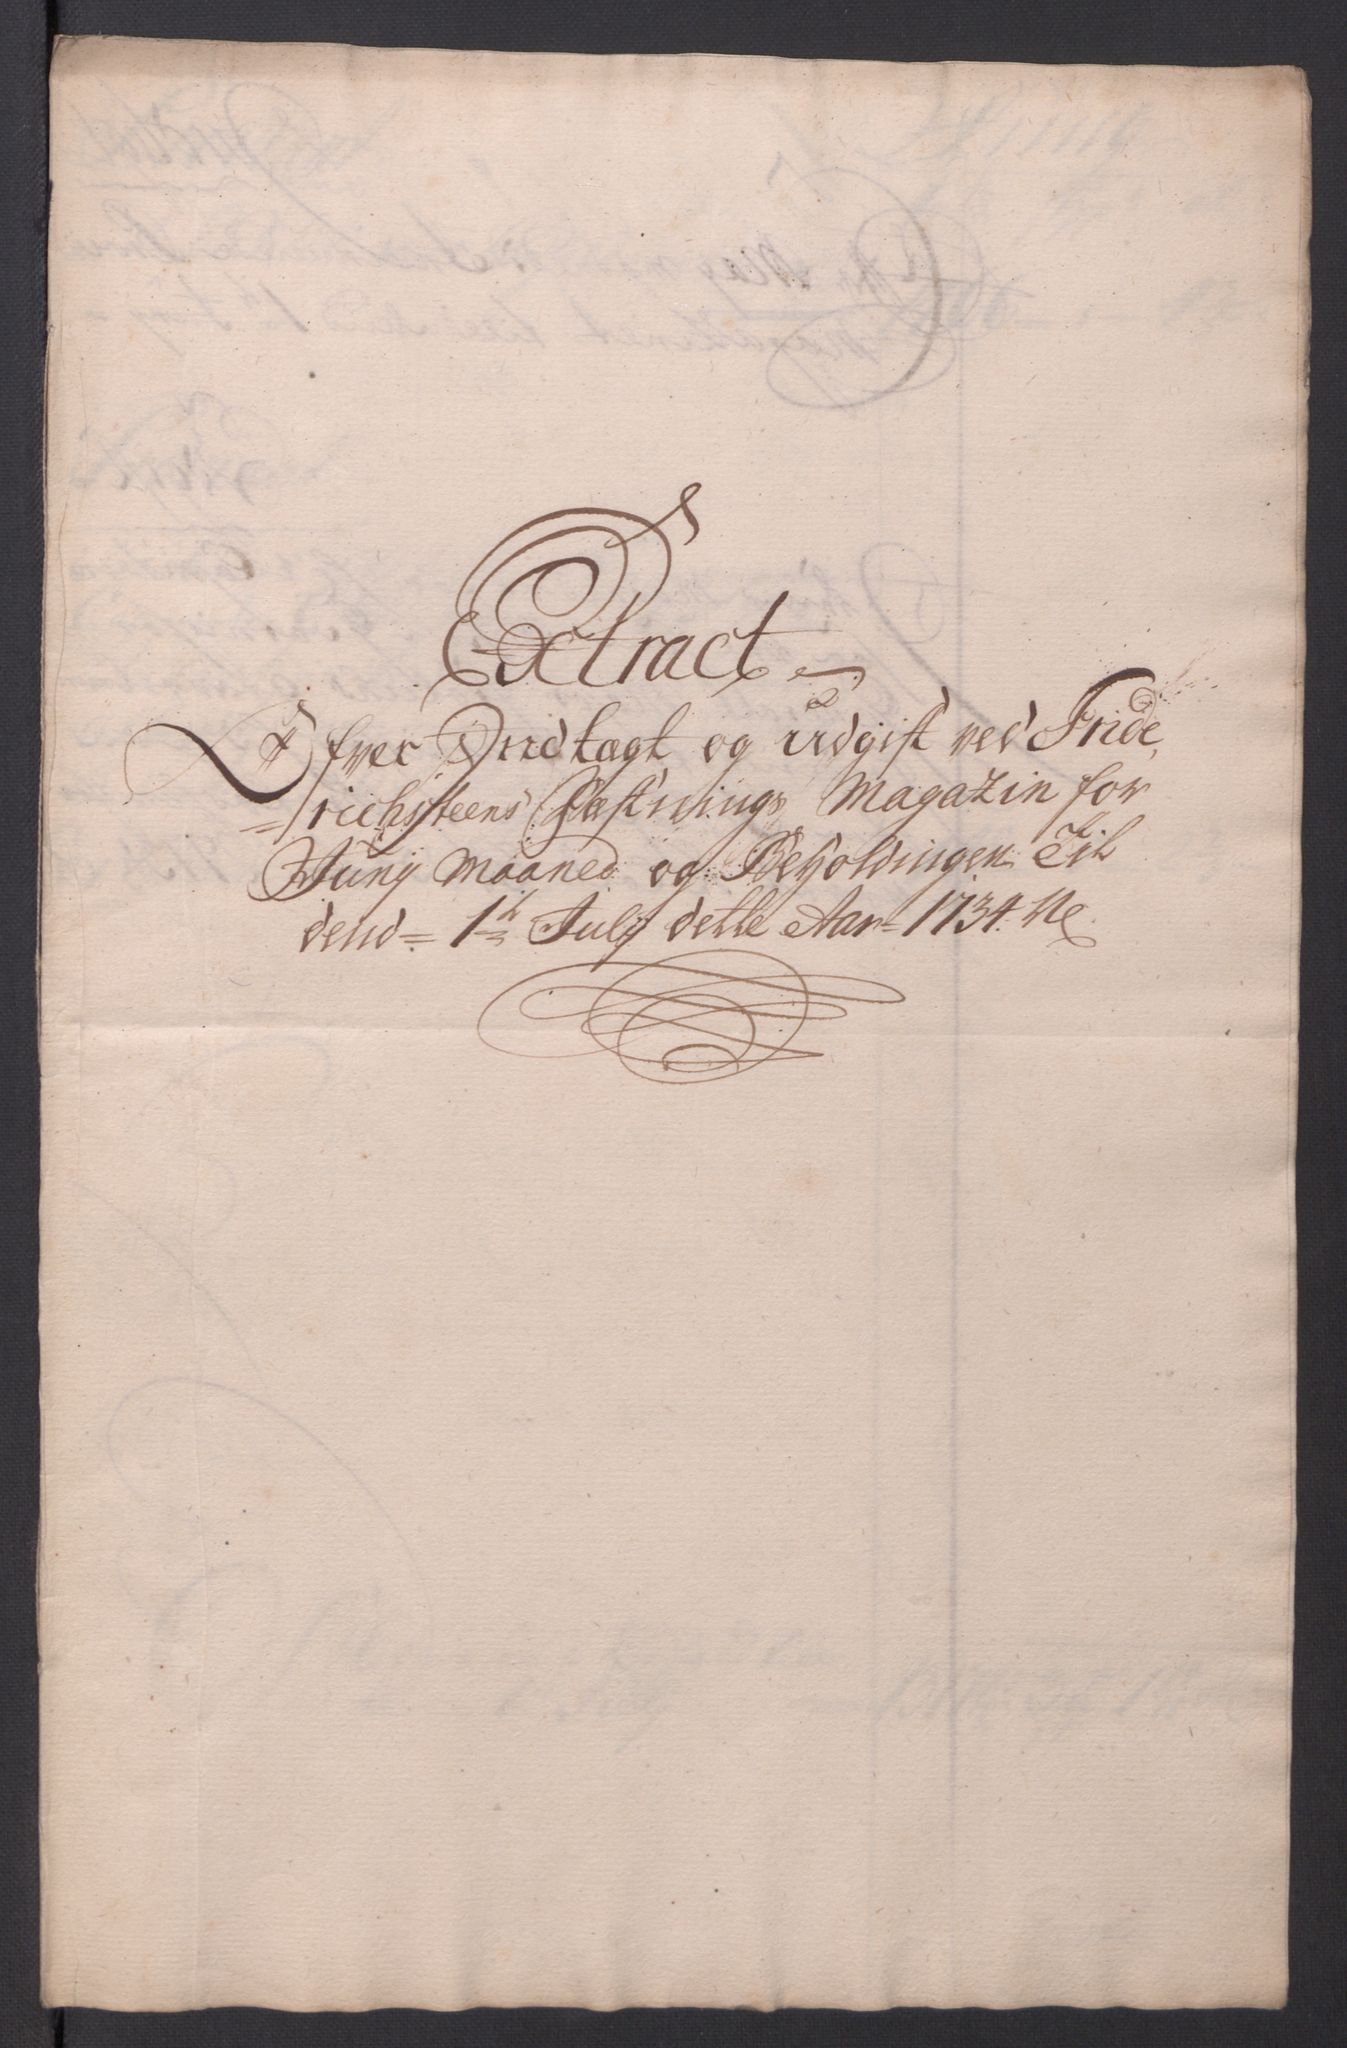 Extract
Ofver Indtægt og udgift ved Fride,
=richsteens Fæstnings Magazin for
Junij Maaned og Beholdingen Til
dend = 1te July dette Aar = 1734.